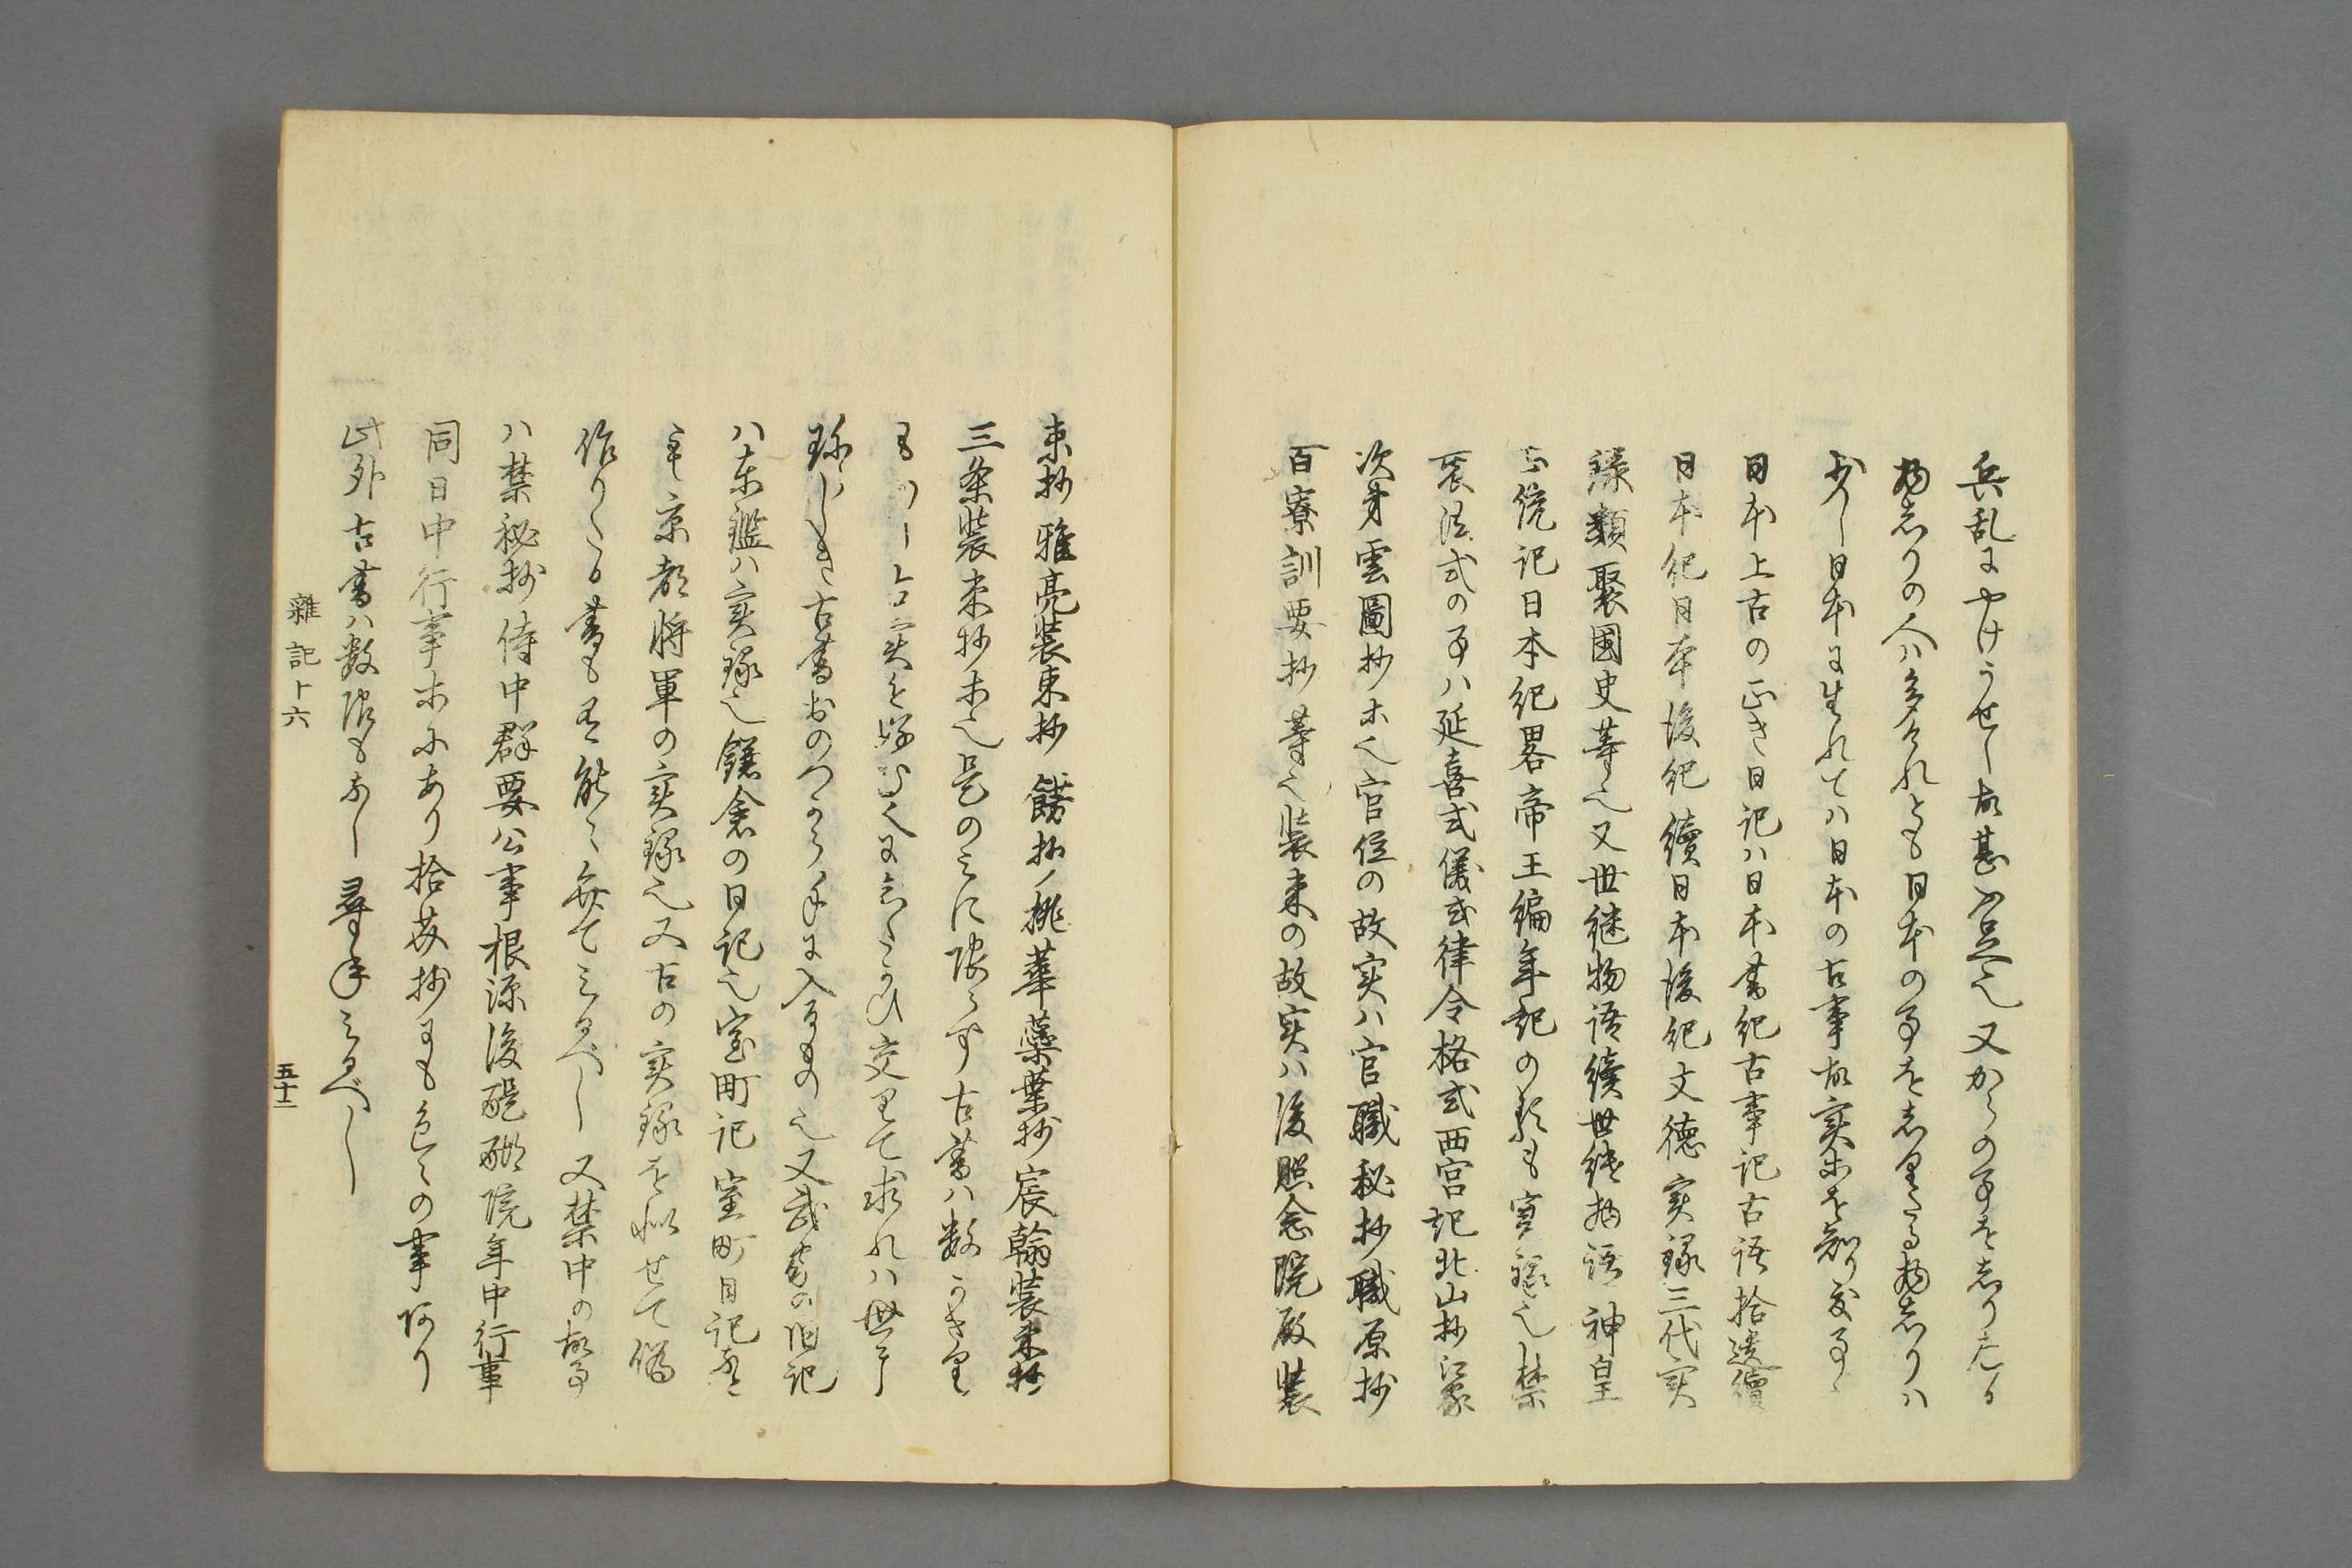 兵乱にやけうせし故甚不足也又からの事を志りたる
物志りの人ハ多けれとも日本の事を志りたる物志りハ
少し日本に生れてハ日本の古事故実等を知り度事
日本上古の正き日記ハ日本書紀古事記古語拾遺續
日本紀日本後紀續日本後紀文徳実録三代実
録類聚國史等也又世継物語續世継物語神皇
正統記日本紀畧帝王編年記の類も実録也禁
裏法式の事ハ延喜式儀式律令格式西宮記北山抄江家
次第雲圖抄等也官位の故実ハ官職秘抄職原抄
百寮訓要抄等也装束の故実ハ後照念院殿装
束抄雅亮装束抄餝抄桃華蘂葉抄宸翰装束抄
三条装束抄等也是のみに限らす古書ハ数多き
ものし古実を好む人に立まひ交りて求れハ世に
珍しき古書おのつから手に入るもの也又武家の旧記
ハ東鑑ハ実録也鎌倉の日記也室町記室町日記
も京都将軍の実録也又古の実録を似せて偽
作りたる書も有能々弁てみるべし又禁中の故事
ハ禁秘抄侍中群要公事根源後醍醐院年中行事
同日中行事等にあり拾芥抄にも色々の事あり
此外古書ハ数限もなし尋てみるべし
雜記十六
五十二